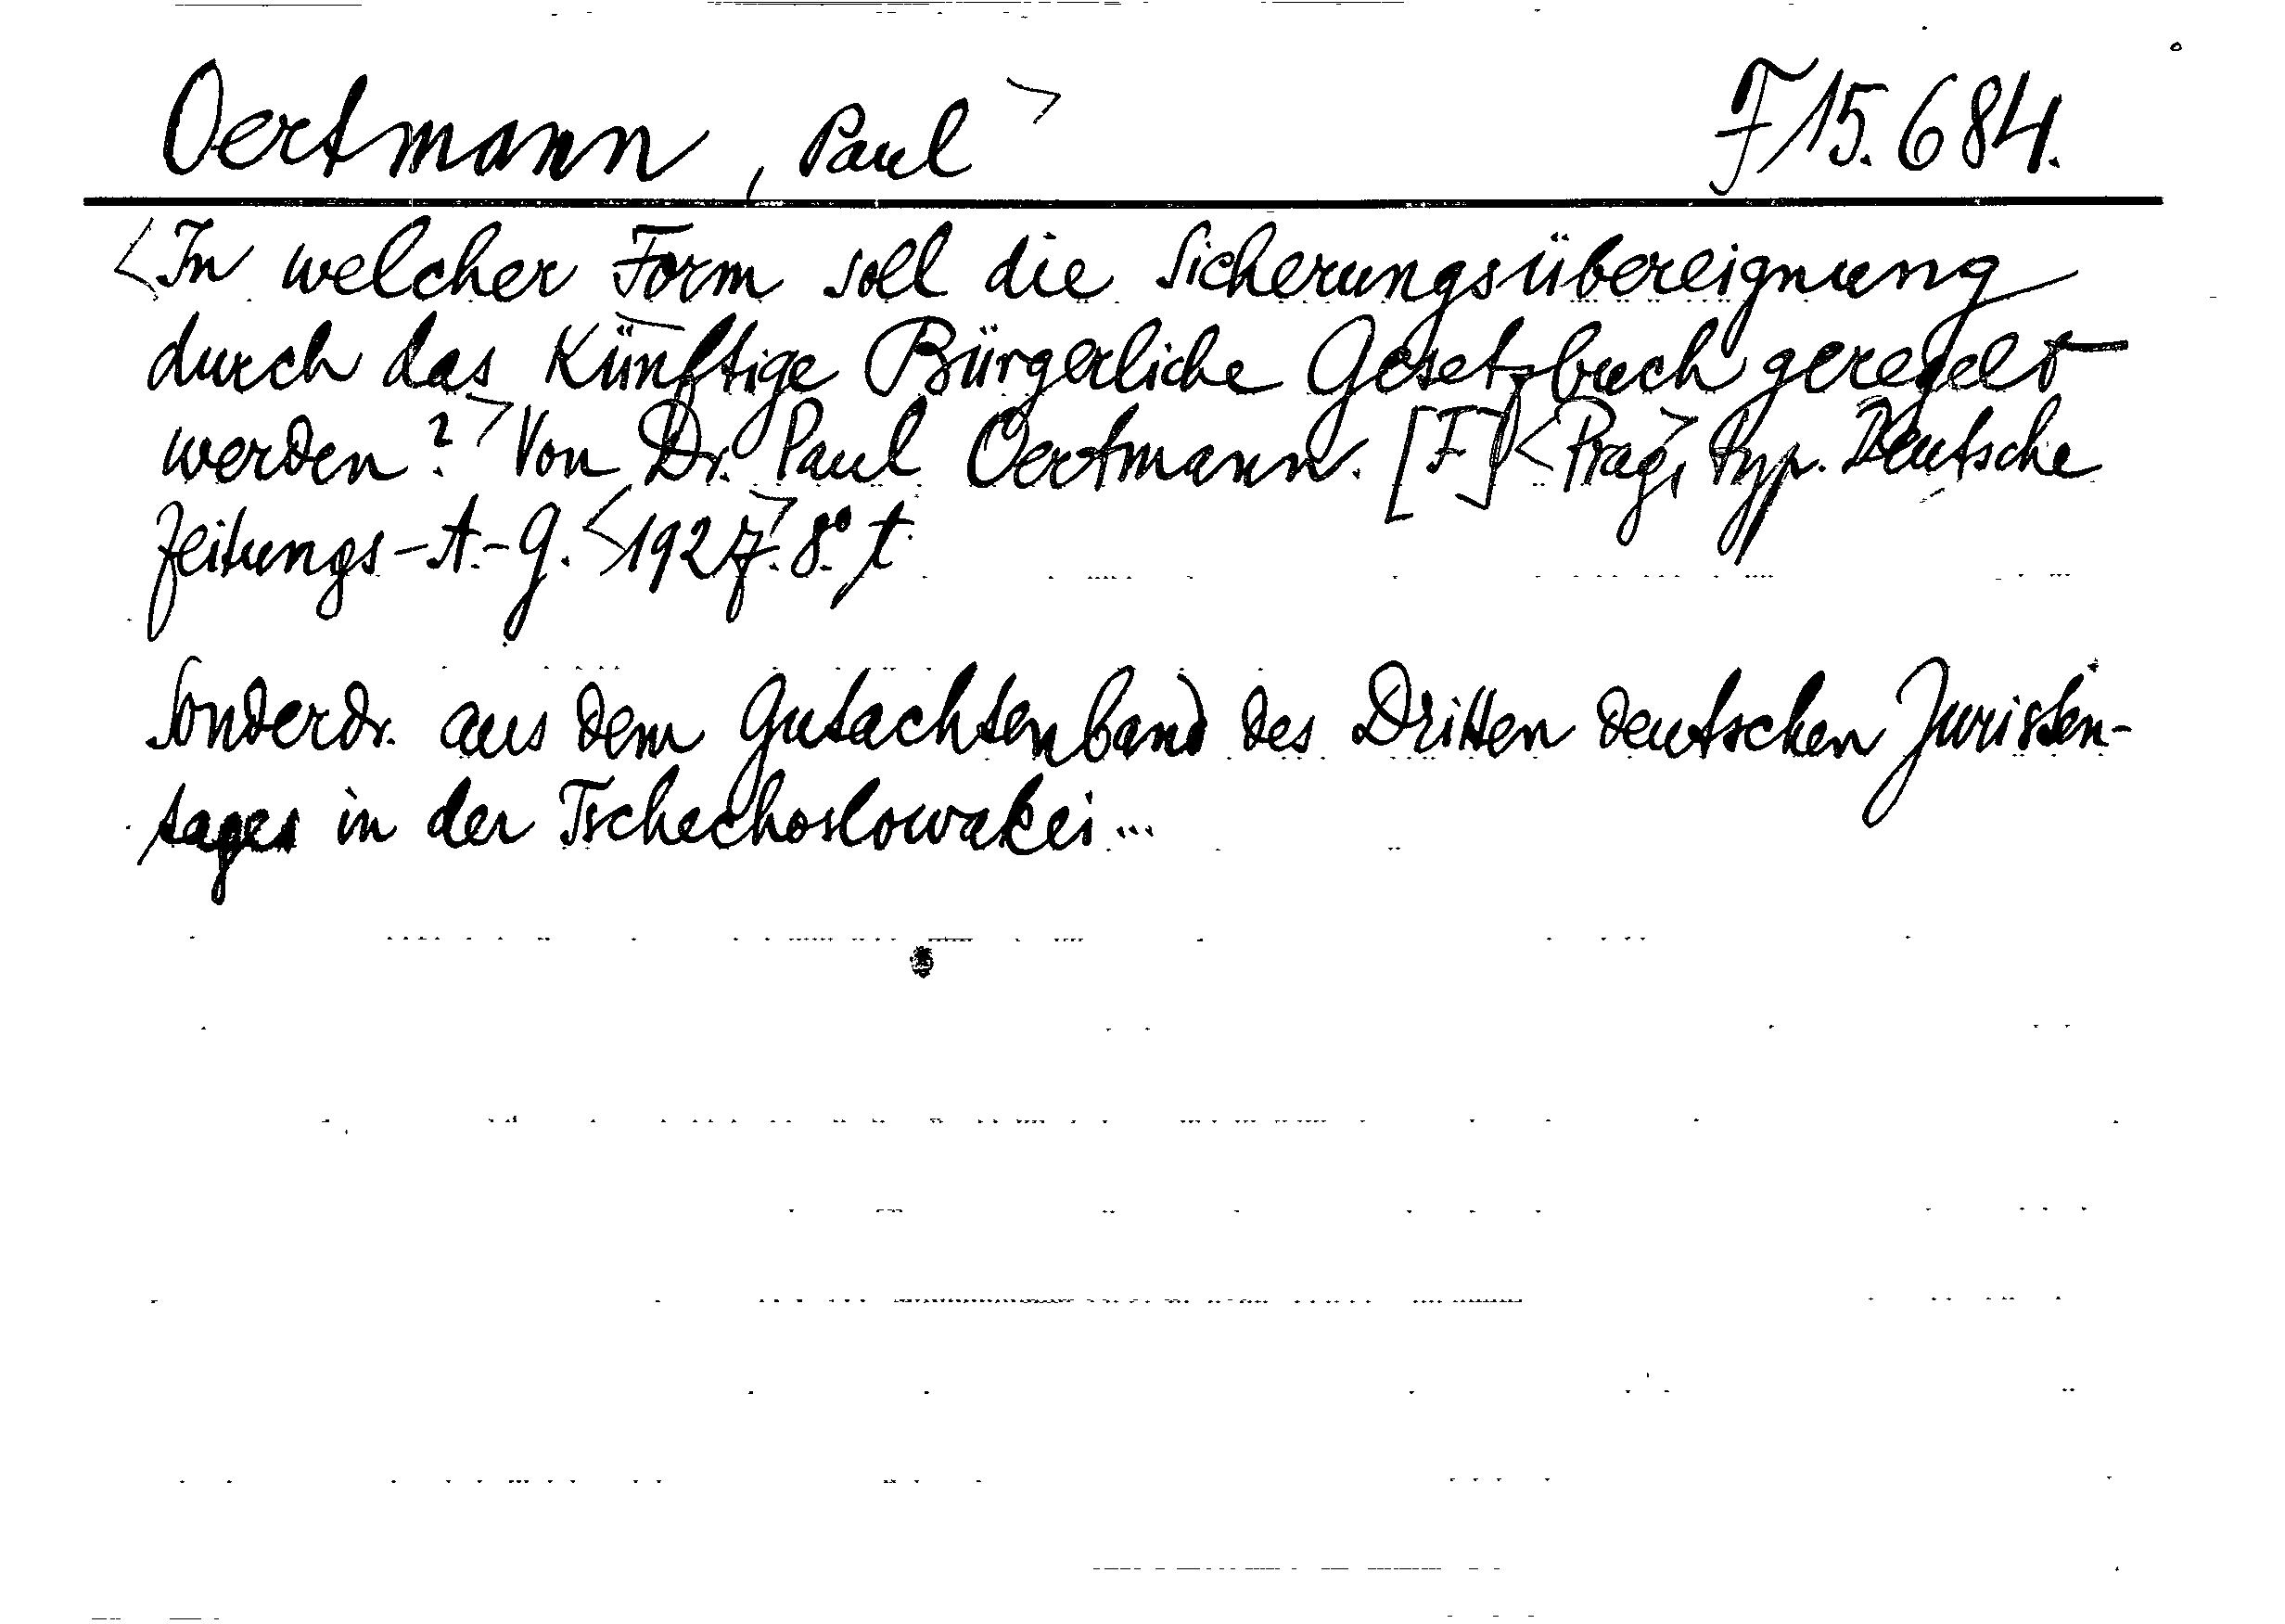 Oertmann, Paul> F 15.684.
<In welcher Form soll die Sicherungsübereignung
durch das künftige Bürgerliche Gesetzbuch geregelt
werden?> Von Dr. Paul Oertmann. [F] <Prag>, typ. Deutsche
Zeitungs-A.-G. <1927>. 8° t.
Sonderdr. aus dem Gutachtenband des Dritten deutschen Juristen-
tages in der Tschechoslowakei...